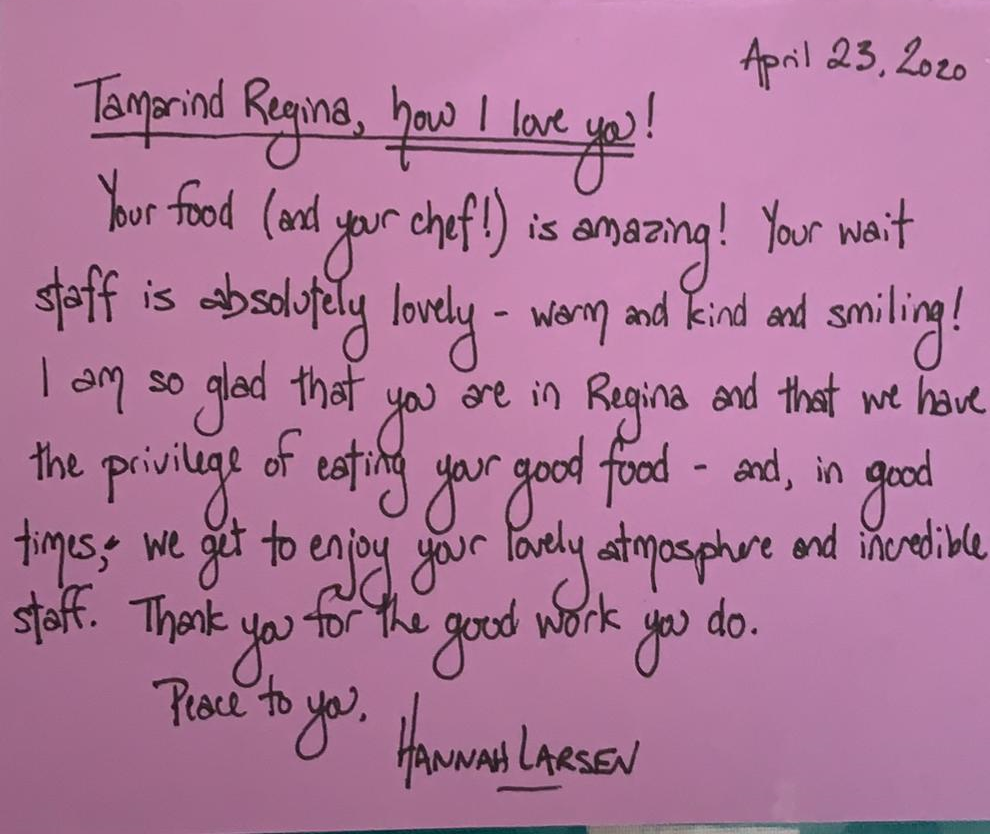 April 23, 2020
Tamarind Regina, how I love you!
Your food (and your chef!) is amazing! Your wait
staff is absolutely lovely - warm and kind and smiling!
I am so glad that you are in Regina and that we have
the privilege of eating your good food - and, in good
times, we get to enjoy your lovely atmosphere and incredible
staff. Thank you for the good work you do.
Peace to you.
HANNAH LARSEN